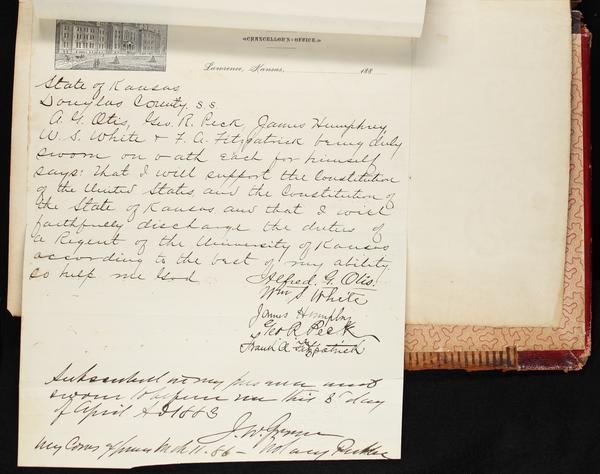 CHANCELLOR'S OFFICE.
Lawrence, Kansas, 188
State of Kansas
Douglas County, s.s.
A. G. Otis, Geo. R. Peck, James Humphrey
W. S. White & F. A. Fitzpatrick being duly
sworn on oath Each for himself
says: that I will support the Constitution
of the United States and the Constitution of
the State of Kansas and that I will
faithfully discharge the duties of
a Regent of the University of Kansas
according to the best of my ability
so help me God
Alfred. G. Otis.
Wm S. White
James Humphrey
Geo R Peck
Frank A. Fitzpatrick
Subscribed in my presence and
sworn to before me this 8th day
of April AD 1883
J. W.
My Com Expires Mch 11. 86 - Notary Public